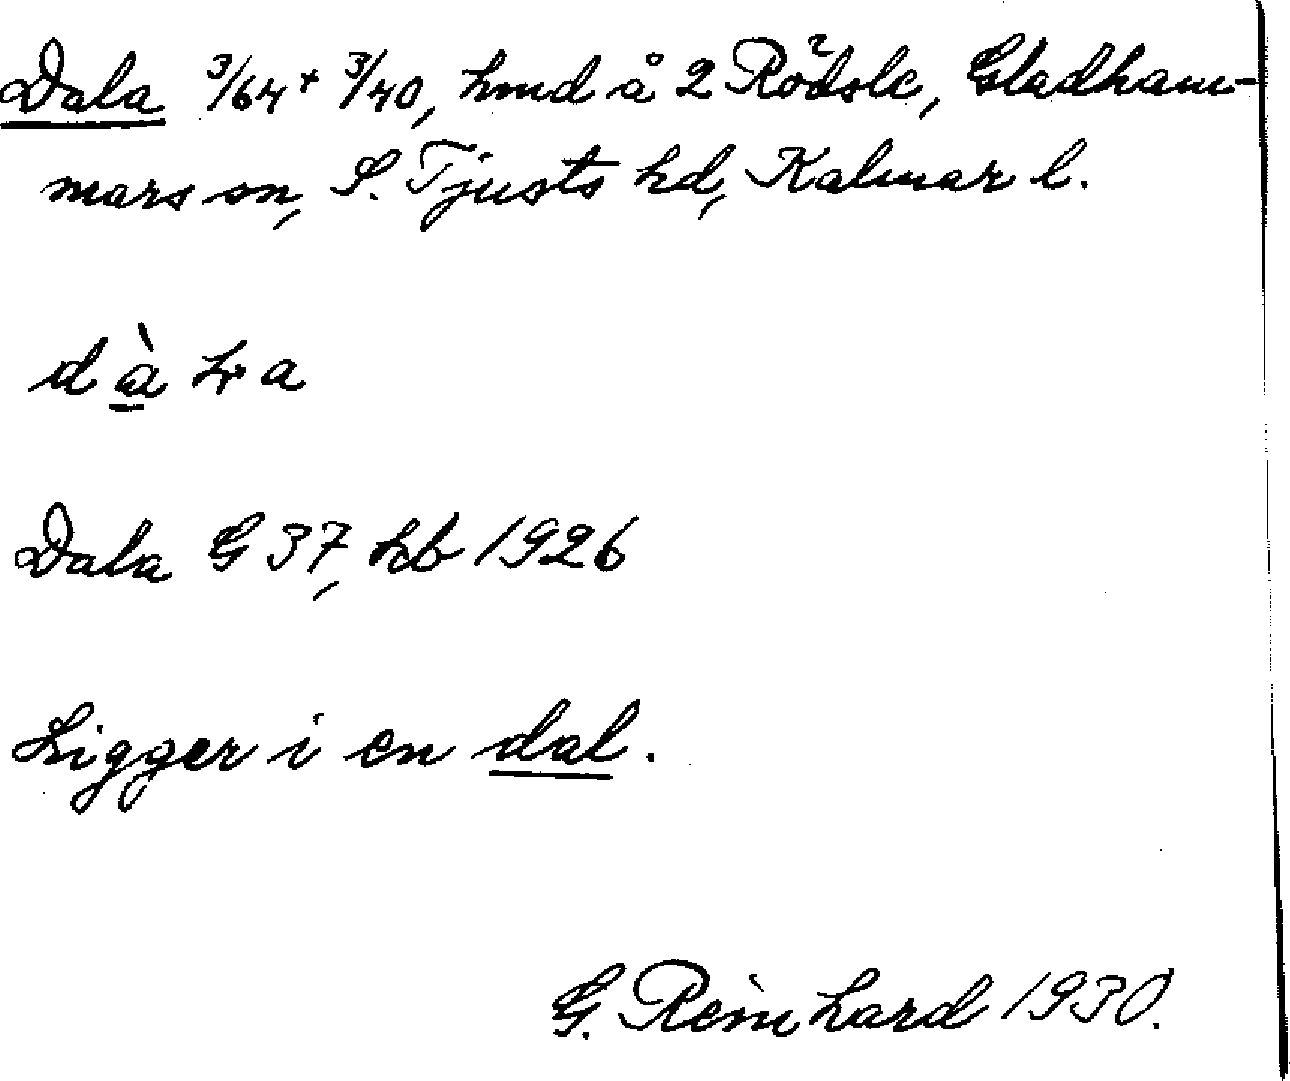 Dala 3/64 + 3/40, hmd å 2 Rödsle, Gladham-
mars sn, S. Tjusts hd, Kalmar l.
dàla
Dala G 37, kb 1926
Ligger i en dal.
G. Reinhard 1930.